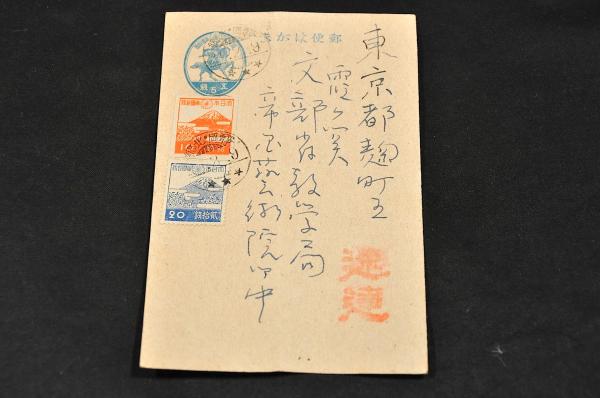 郵便はがき
東京都麹町区
霞ヶ関
文部省教学局
帝国芸術院御中
速達
20
貳拾銭